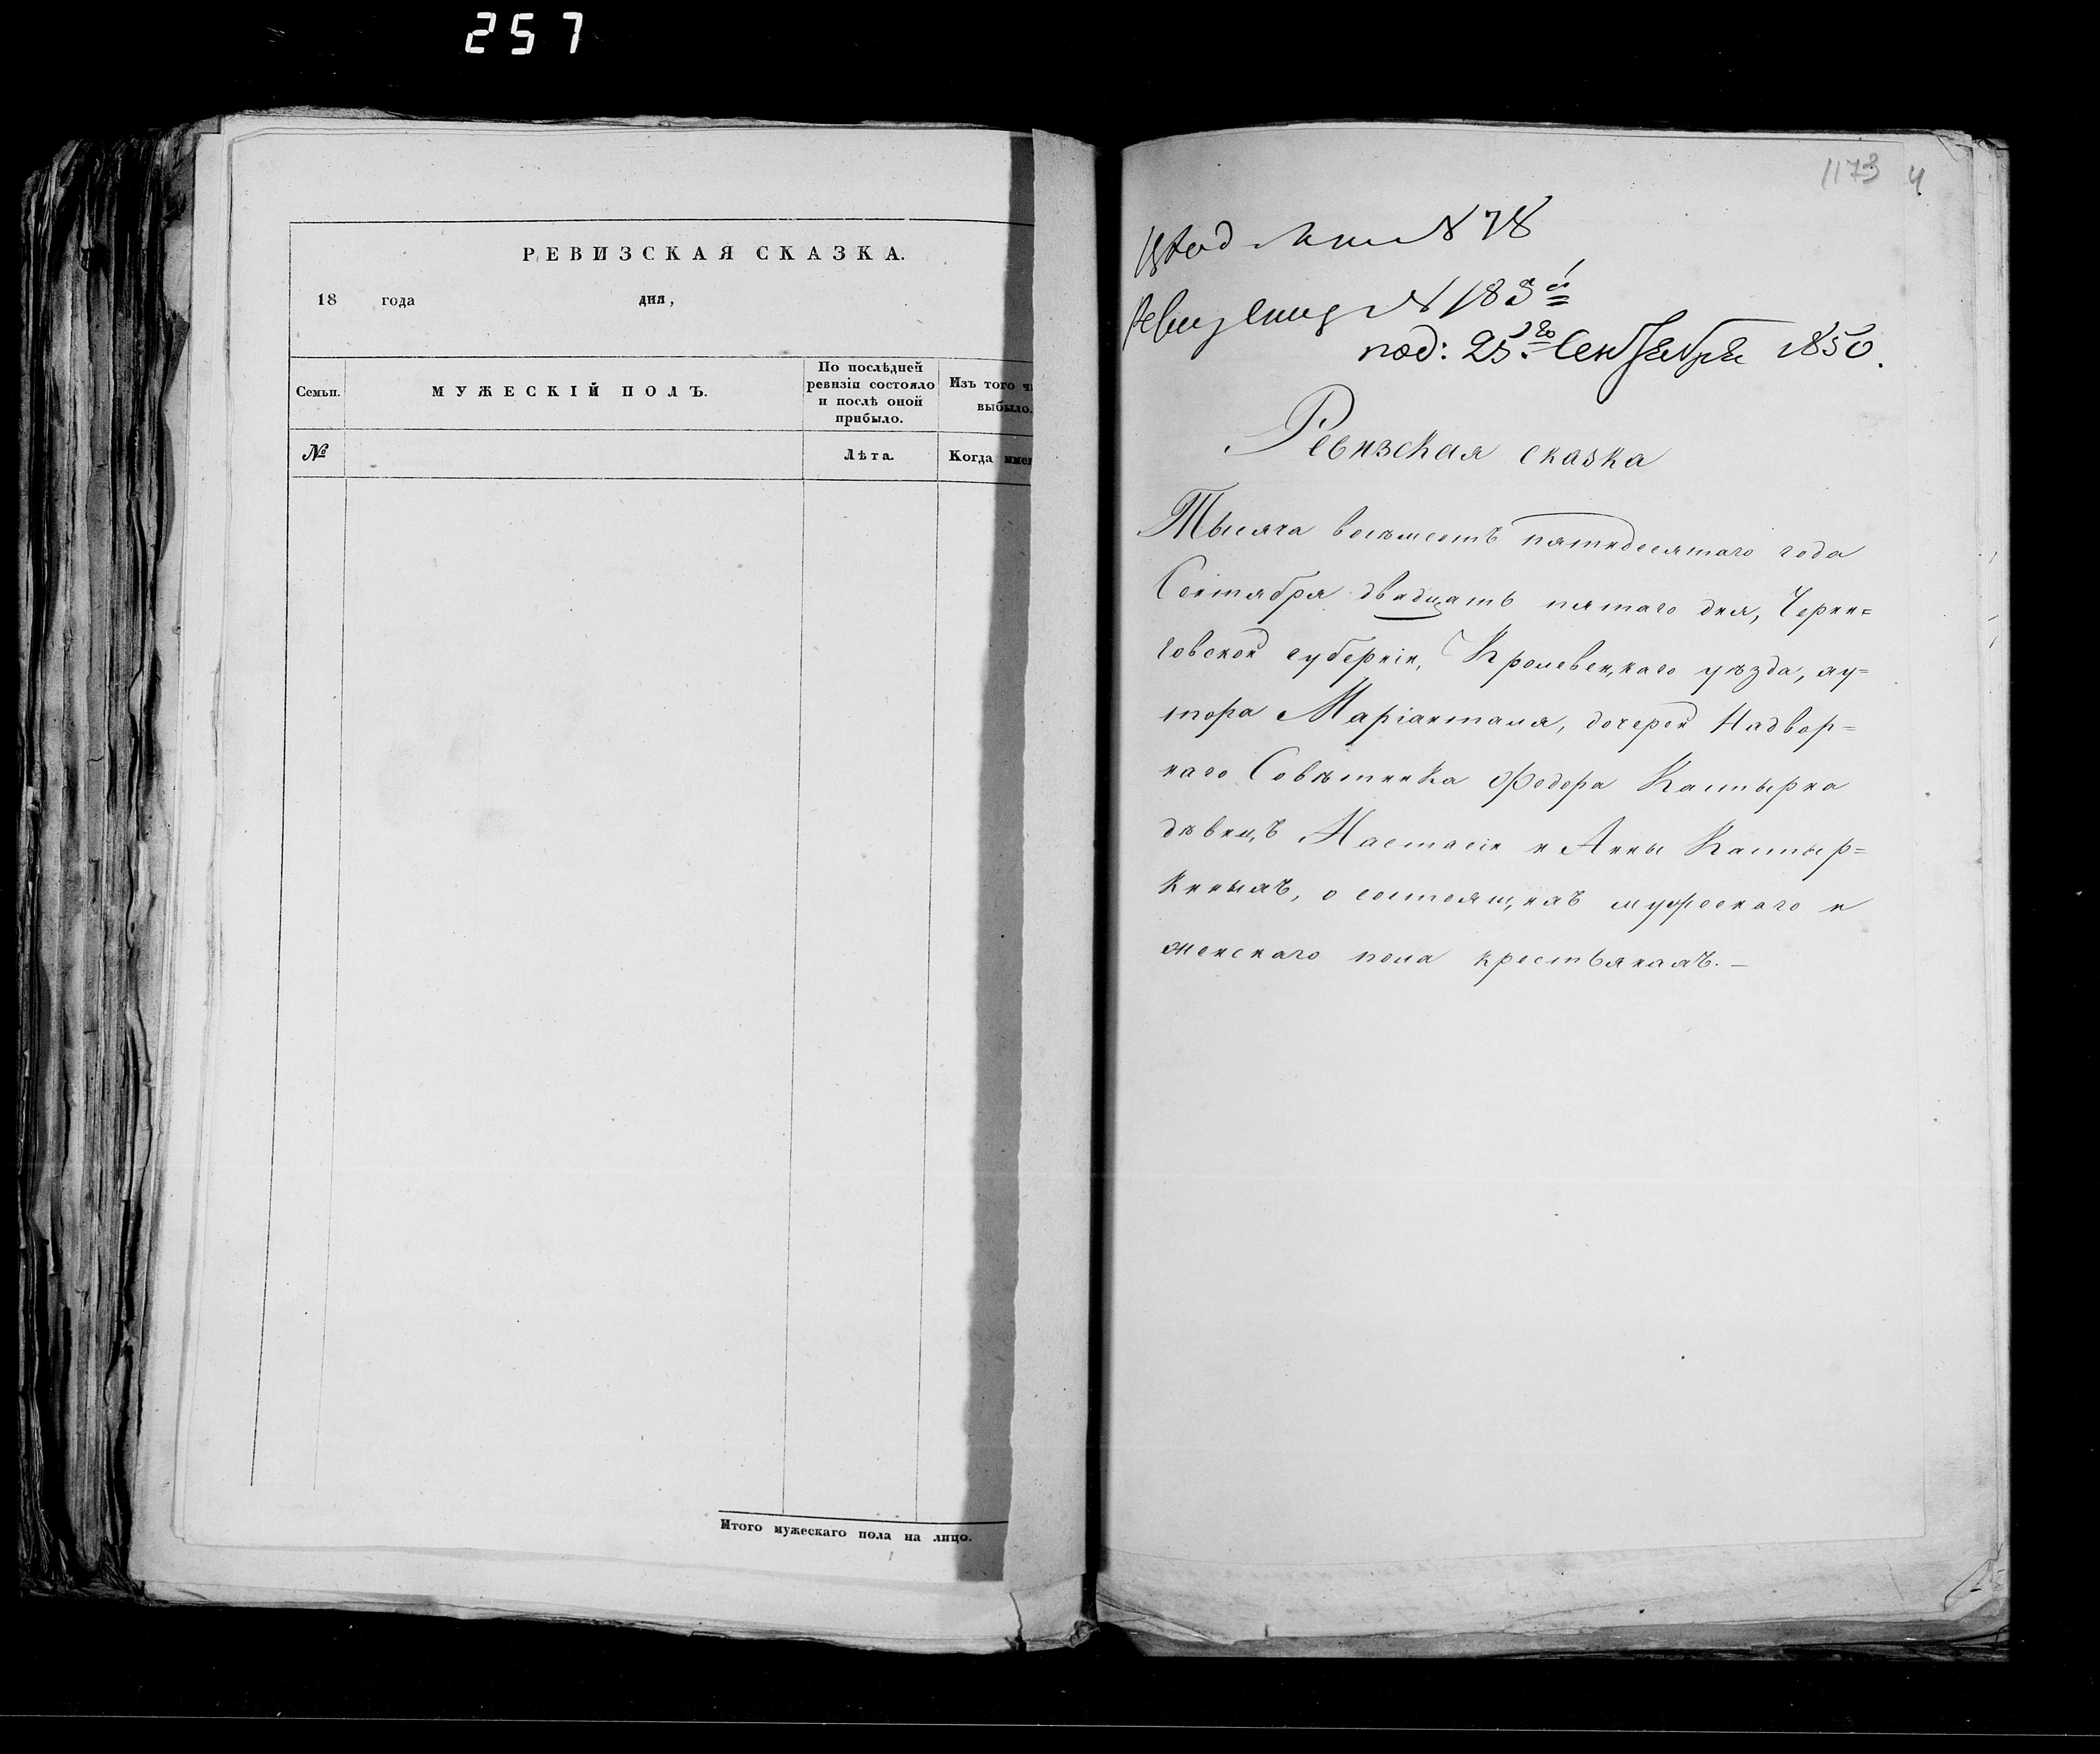 257
РЕВИЗСКАЯ СКАЗКА.
18 года дня,
Семьи.
МУЖЕСКІЙ ПОЛЪ.
По послѣдней
ревизіи состояло
и послѣ оной
прибыло.
Изъ того
выбыло.
№
Лѣта.
Когда
Итого мужескаго пола на лицо.
1173 4
№ 78
№ 183й
под: 25го Сентября 1850.
Ревизская сказка
Тысяча восѣмсотъ пятидесятаго года
Сентября двадцать пятаго дня, Черни=
говской губерніи, Кролевецкаго уѣзда, ху=
тора Маріанталя, дочерей Надвор=
наго Совѣтника Федора
дѣвицъ Настасіи и Анны
о состоящихъ мужескаго и
женскаго пола крестьянахъ.—